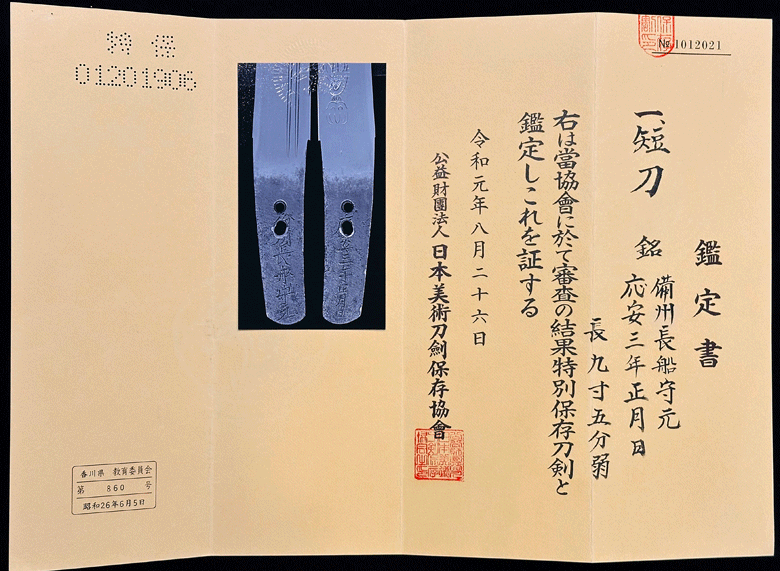 № 1012021
鑑定書
一、短刀
銘 備州長船守元
応安三年正月日
長 九寸五分弱
右は當協會に於て審査の結果特別保存刀剣と
鑑定しこれを証する
令和元年八月二十六日
公益財團法人 日本美術刀劍保存協會
特保
01201906
香川県 教育委員会
第 860 号
昭和26年6月5日